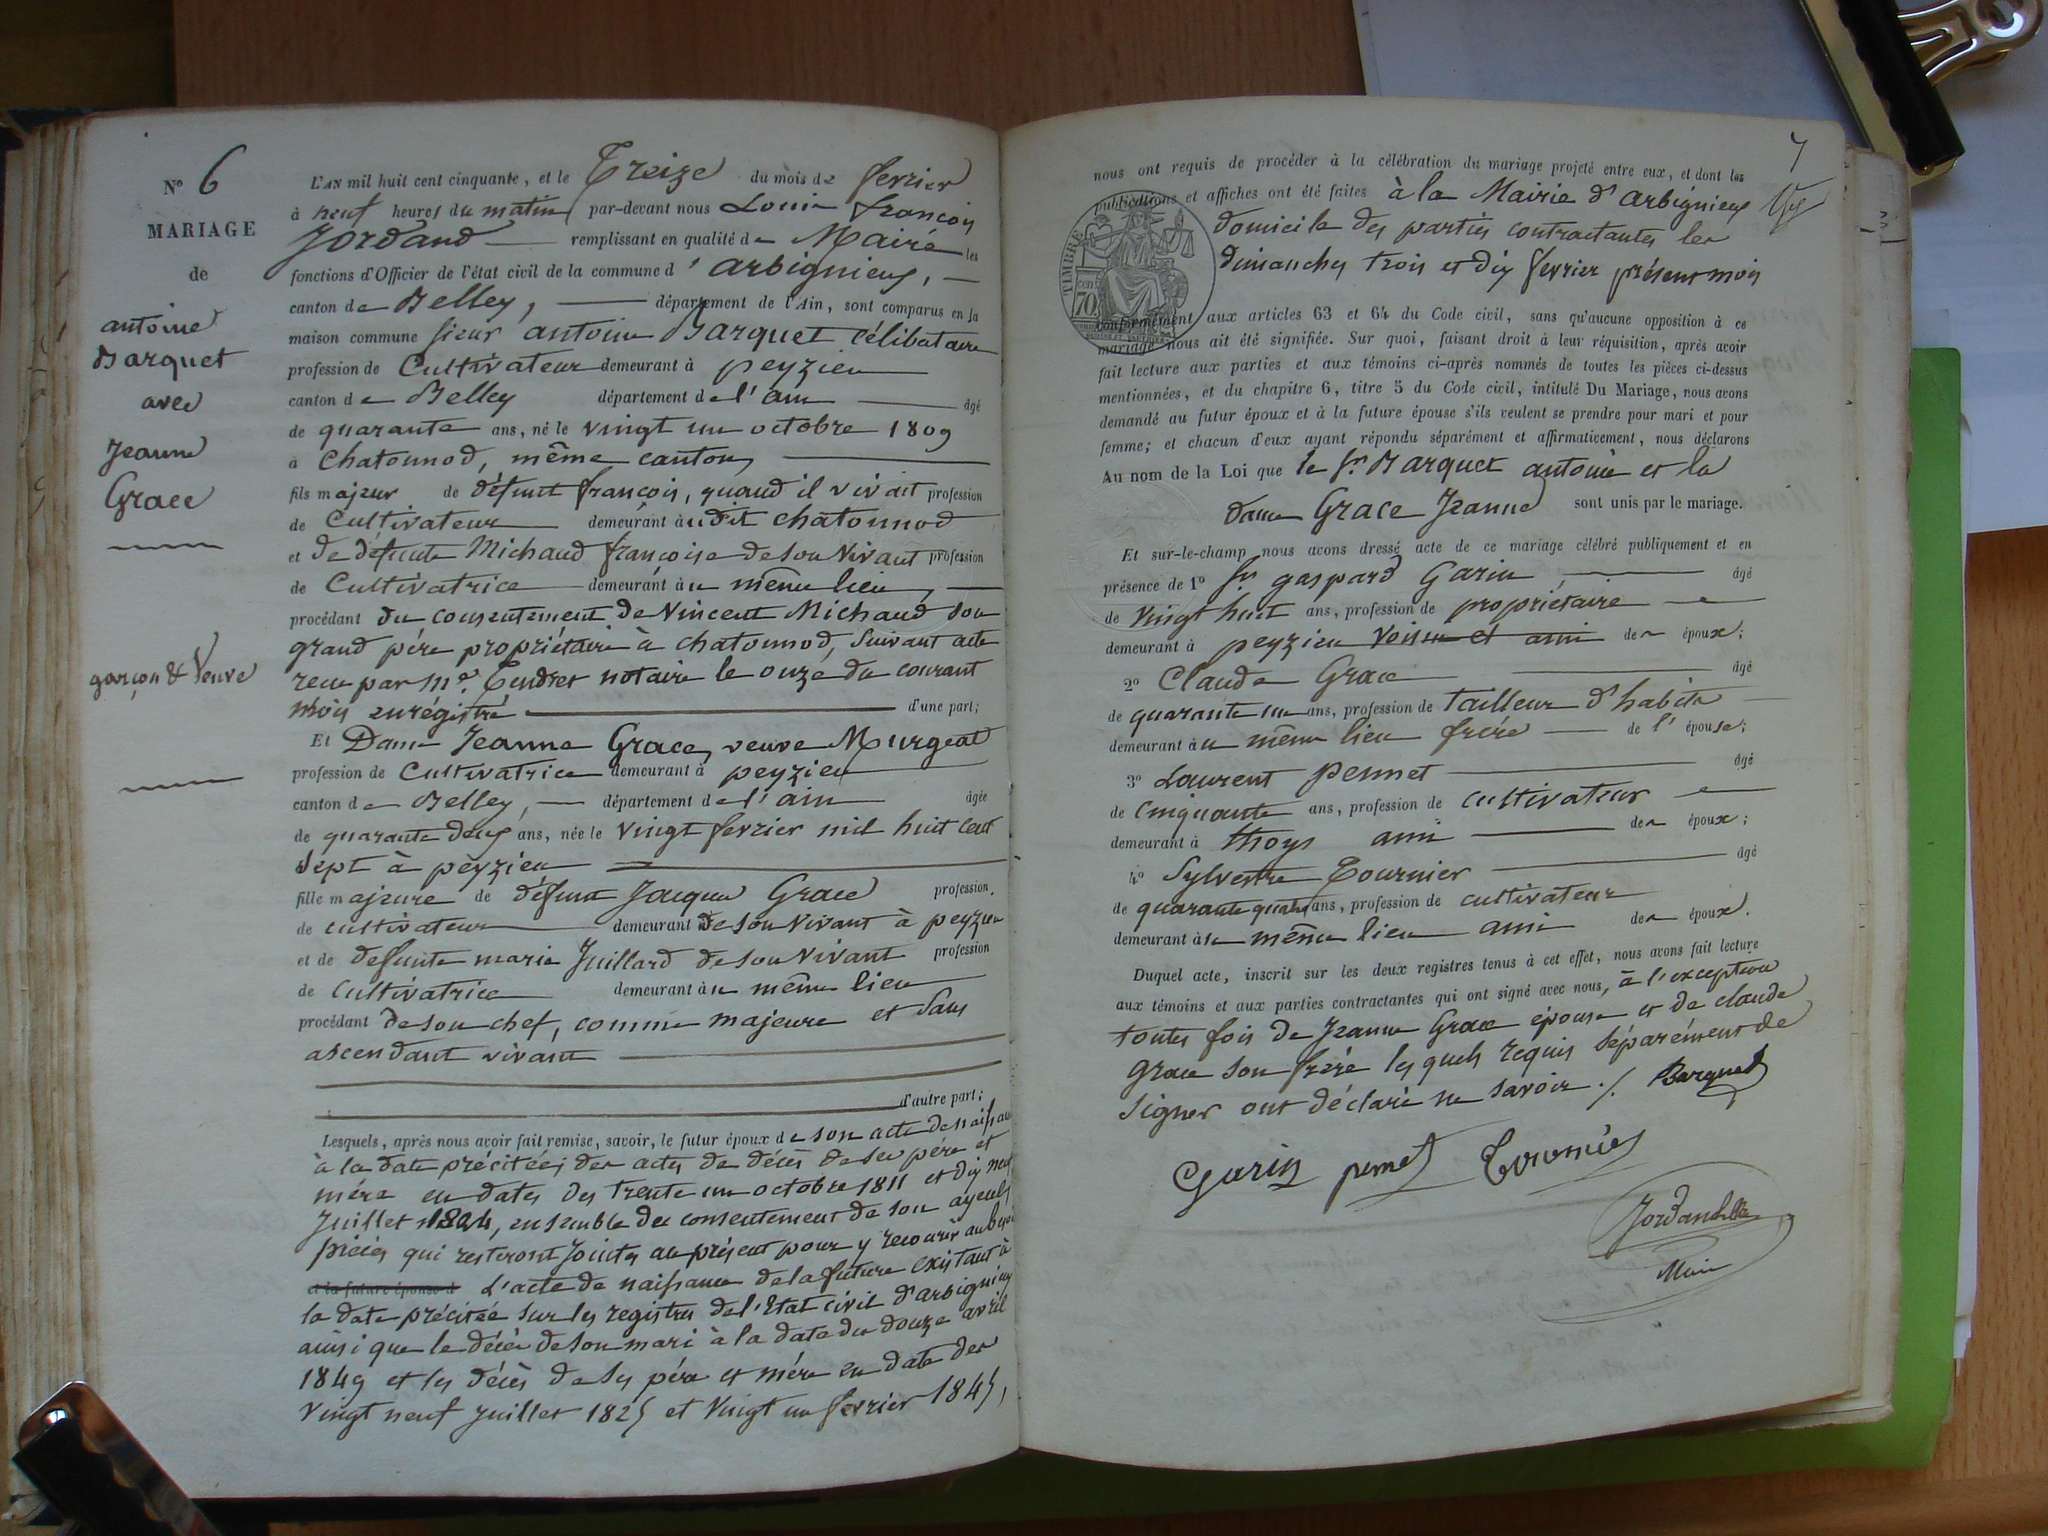 N° 6
MARIAGE
de
antoine
Barquet
avec
Jeanne
Grace
garçon & Veuve
L'AN mil huit cent cinquante, et le Treize du mois de fevrier
à neuf heures du matin par-devant nous Louis françois
Jordand remplissant en qualité de Maire les
fonctions d'Officier de l'état civil de la commune d'arbignieux,
canton de Belley, département de l'Ain, sont comparus en la
maison commune sieur antoine Barquet célibataire
profession de Cultivateur demeurant à peyzieu
canton de Belley département de l'ain âgé
de quarante ans, né le vingt un octobre 1809
à Chatonnod, même canton,
fils majeur de défunt françois, quand il vivait profession
de Cultivateur demeurant audit chatonnod
et de défunte Michaud françoise de son vivant profession
de Cultivatrice demeurant au même lieu,
procédant du consentement de Vincent Michaud son
grand père propriétaire à chatonnod, suivant acte
recu par Me. Tendret notaire le onze du courant
mois enrégistré d'une part;
Et Dame Jeanne Grace, veuve Murgeat
profession de Cultivatrice demeurant à peyzieu
canton de Belley, département de l'ain âgée
de quarante deux ans, née le vingt fevrier mil huit cent
sept à peyzieu
fille majeure de défunt Jacques Grace profession
de cultivateur demeurant de son vivant à peyzieu
et de defunte marie Juillard de son vivant profession
de cultivatrice demeurant au même lieu
procédant de son chef, comme majeure et sans
ascendant vivant
d'autre part;
Lesquels, après nous avoir fait remise, savoir, le futur époux de son acte de naissance
à la date précitée; des actes de décès de ses père et
mère en dates des trente un octobre 1811 et dix neuf
Juillet 1824, ensemble du consentement de son ayeul,
pièces qui resteront jointes au présent pour y recourir au besoin
et la future épouse d L'acte de naissance de la future existant à
la date précitée sur les registres de l'Etat civil d'arbignieux
ainsi que le décès de son mari à la date du douze avril
1849 et les décès de ses père et mère en date des
vingt neuf juillet 1825 et vingt un fevrier 1845,
7
nous ont requis de procéder à la célébration du mariage projeté entre eux, et dont les
publications et affiches ont été faites à la Mairie d'arbignieux
domicile des parties contractantes les
dimanches trois et dix fevrier présent mois
TIMBRE
70
conformément aux articles 63 et 64 du Code civil, sans qu'aucune opposition à ce
mariage nous ait été signifiée. Sur quoi, faisant droit à leur réquisition, après avoir
fait lecture aux parties et aux témoins ci-après nommés de toutes les pièces ci-dessus
mentionnées, et du chapitre 6, titre 5 du Code civil, intitulé Du Mariage, nous avons
demandé au futur époux et à la future épouse s'ils veulent se prendre pour mari et pour
femme; et chacun d'eux ayant répondu séparément et affirmativement, nous déclarons
Au nom de la Loi que le Sr Barquet antoine et la
dame Grace Jeanne sont unis par le mariage.
Et sur-le-champ nous avons dressé acte de ce mariage célébré publiquement et en
présence de 1° Sr gaspard Garin âgé
de vingt huit ans, profession de propriétaire
demeurant à peyzieu voisin et ami de époux;
2° Claude Grace âgé
de quarante un ans, profession de tailleur d'habits
demeurant au même lieu frère de l'épouse;
3° Laurent pernet âgé
de cinquante ans, profession de cultivateur
demeurant à thoys ami de époux;
4° Sylvestre Tournier âgé
de quarante quatre ans, profession de cultivateur
demeurant au même lieu ami de époux.
Duquel acte, inscrit sur les deux registres tenus à cet effet, nous avons fait lecture
aux témoins et aux parties contractantes qui ont signé avec nous, à l'exception
toutes fois de Jeanne Grace épouse et de claude
grace son frère les quels requis séparément de
signer ont déclaré ne savoir ./. Barquet
Garin pernet Tournier
Jordand
Maire